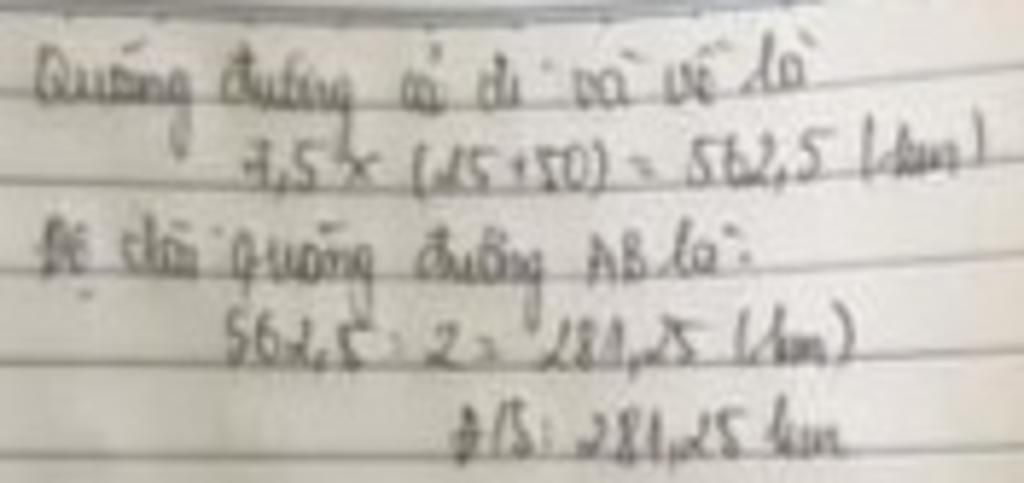 Quãng đường cả đi và về là
7,5 x (25+50) = 562,5 (km)
Độ dài quãng đường AB là:
562,5 : 2 = 281,25 (km)
Đ/S: 281,25 km